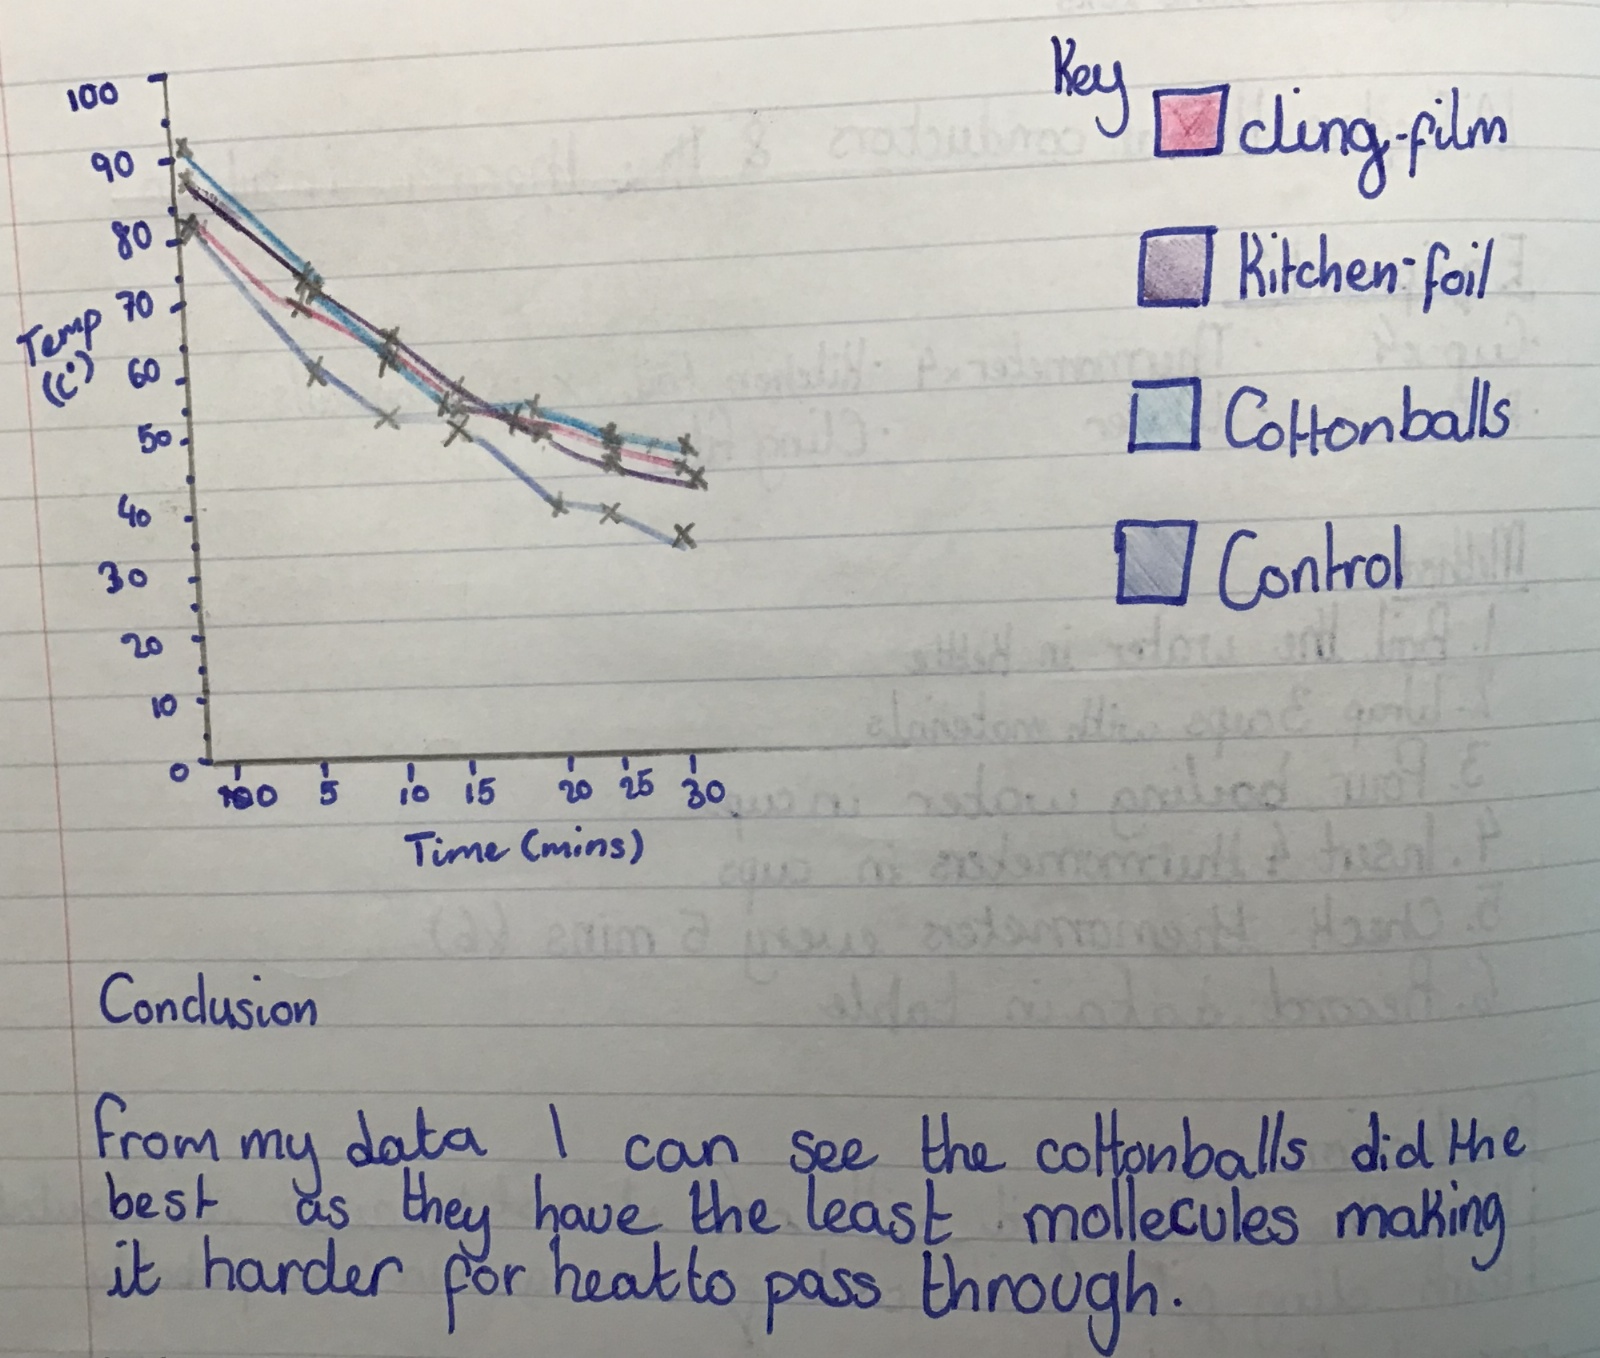 Key
cling-film
Kitchen-foil
Cottonballs
Control
100
90
80
70
60
50
40
30
20
10
0
Temp
(C°)
0 5 10 15 20 25 30
Time (mins)
Conclusion
from my data I can see the cottonballs did the
best as they have the least mollecules making
it harder for heat to pass through.